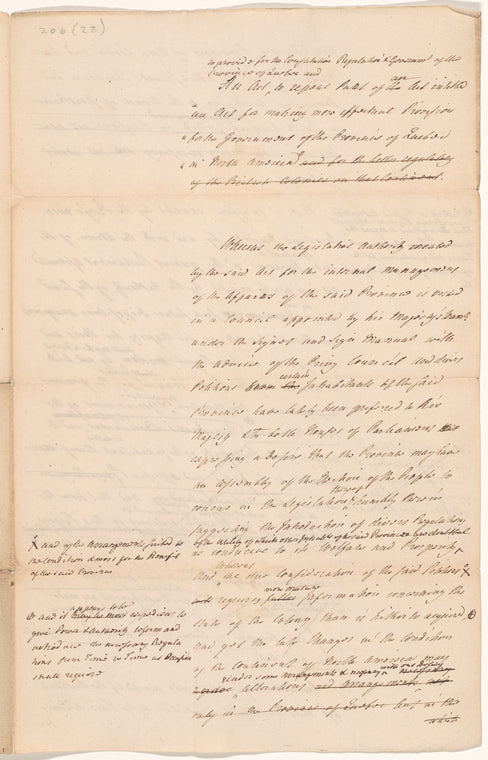 206 (23)
to provide for the Constitution Regulation & Government of the
Province of Quebec and
An Act, to repeal Parts of an Act intitled
an Act for making more effectual Provision
for the Government of the Province of Quebec
in North America and for the better regulating
of the British Colonies on that Continent.
Whereas the Legislative Authority created
by the said Act for the internal management
of the Affairs of the said Province is vested
in a Council appointed by his Majesty's
under the Signet and Sign Manual with
the advice of the Privy Council and divers
Petitions certain Inhabitants of the said
Province have lately been preferred to His
Majesty & to both Houses of Parliament
expressing a Desire that the Province may have
an Assembly of the Election of the People to
concur in the Legislation thereof humbly therein
suggesting the Introduction of divers Regulations
of the Utility of which other Inhabts of the said Province are doubtful
as conducive to its Welfare and Prosperity
Whereas
And the due Consideration of the said Petitions X
more mature
requires Information concerning the
State of the Colony than is hitherto acquired ⊕
and yet the late Changes in the Condition
of the Continent of North America may
render some arrangements & necessary
alterations and arrangements
only in the Province of Quebec but in the
which
X and of the Arrangements suited to
the condition & most for the Benefit
of the said Province
⊕ and it appears to be expedient to
give Power & Authority to form and
the necessary Regula
tions from Time to Time as Occasion
shall require